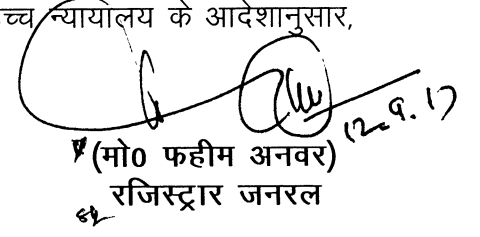 उच्च न्यायालय के आदेशानुसार,
12.9.17
(मो0 फहीम अनवर)
रजिस्ट्रार जनरल